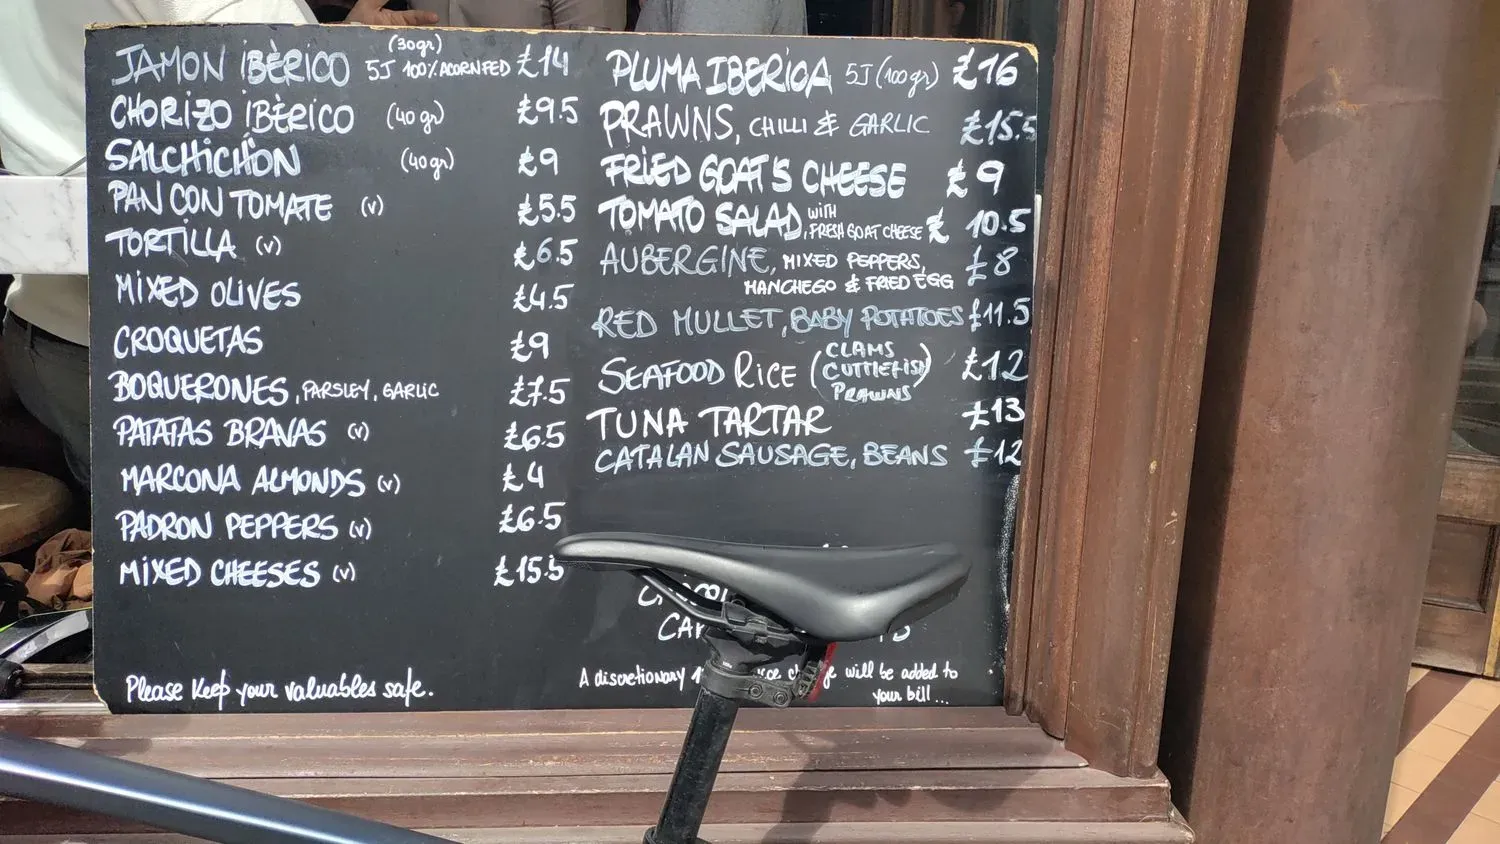 (30gr)
JAMON IBÈRICO 5J 100% ACORN FED £14
CHORIZO IBÈRICO (40gr) £9.5
SALCHICHÓN (40gr) £9
PAN CON TOMATE (v) £5.5
TORTILLA (v) £6.5
MIXED OLIVES £4.5
CROQUETAS £9
BOQUERONES, PARSLEY, GARLIC £7.5
PATATAS BRAVAS (v) £6.5
MARCONA ALMONDS (v) £4
PADRON PEPPERS (v) £6.5
MIXED CHEESES (v) £15.5
Please Keep your valuables safe.
PLUMA IBERICA 5J (100gr) £16
PRAWNS, CHILLI & GARLIC £15.5
FRIED GOAT'S CHEESE £9
TOMATO SALAD, WITH FRESH GOAT CHEESE £10.5
AUBERGINE, MIXED PEPPERS, £8
MANCHEGO & FRIED EGG
RED MULLET, BABY POTATOES £11.5
SEAFOOD RICE (CLAMS CUTTLEFISH PRAWNS) £12
TUNA TARTAR £13
CATALAN SAUSAGE, BEANS £12
A discretionary will be added to
your bill...